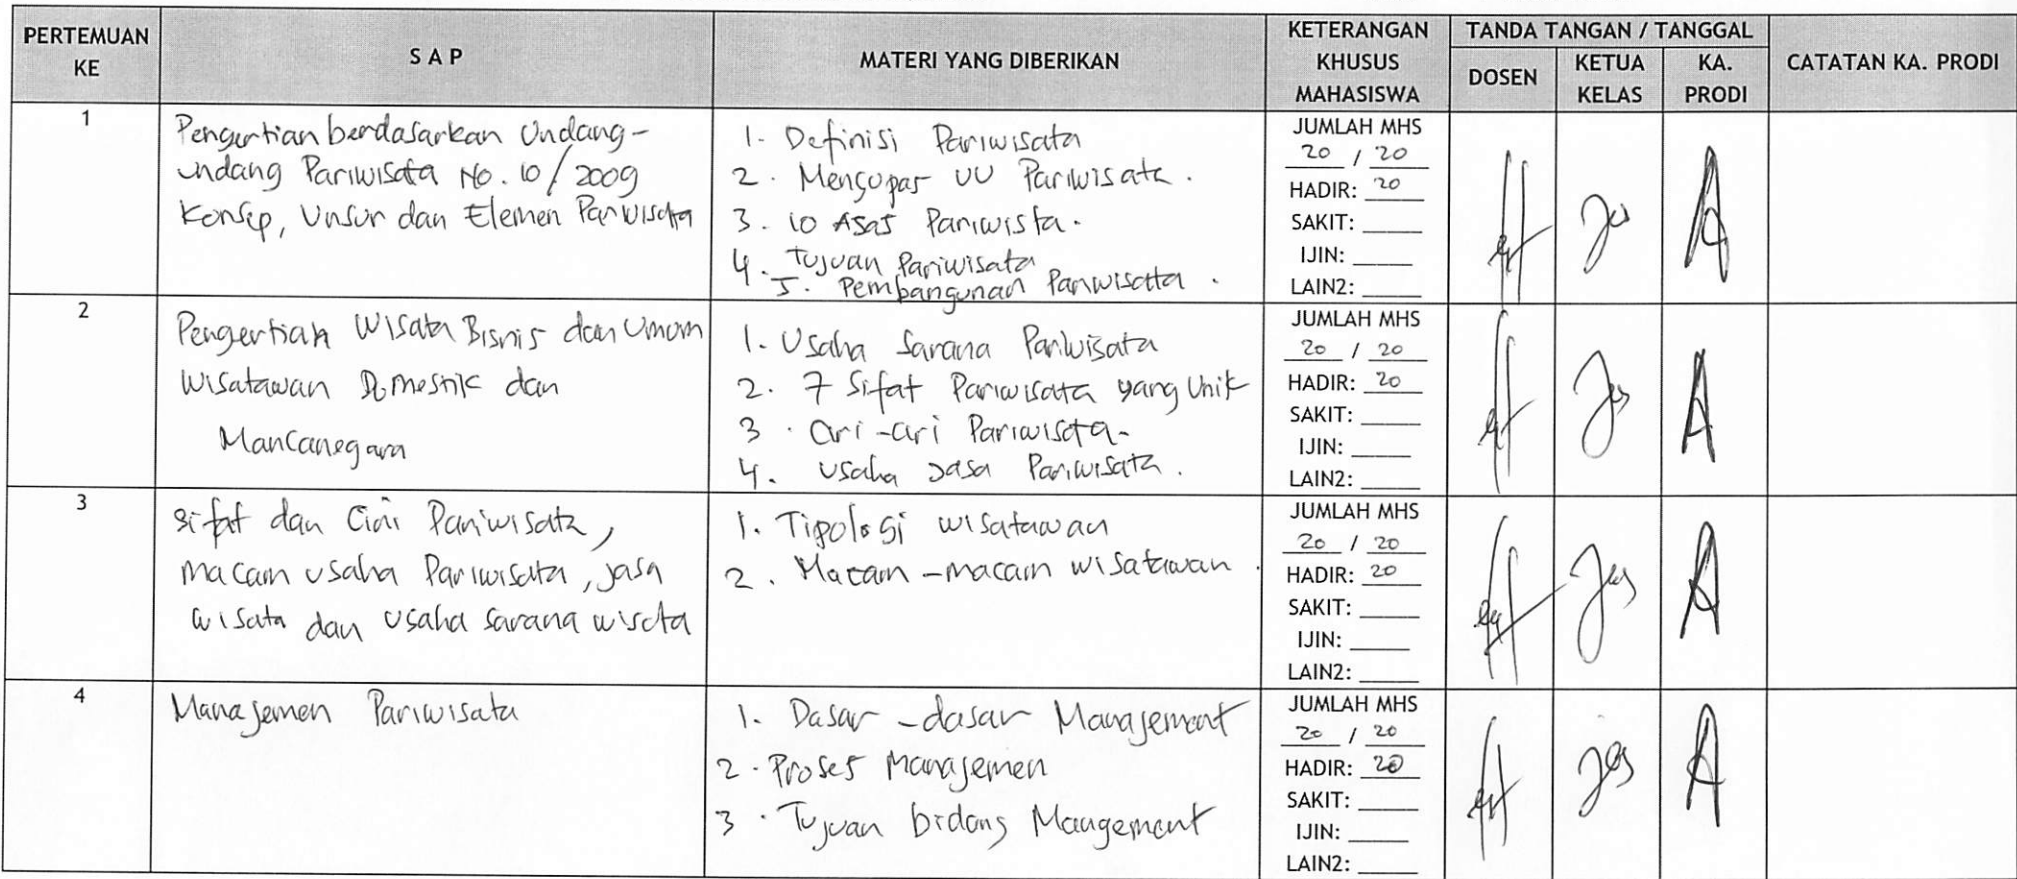 PERTEMUAN KE
S A P
MATERI YANG DIBERIKAN
KETERANGAN KHUSUS MAHASISWA
TANDA TANGAN / TANGGAL
DOSEN
KETUA KELAS
KA. PRODI
CATATAN KA. PRODI
1
Pengertian berdasarkan Undang-
undang Pariwisata No. 10/2009
Konsep, Unsur dan Elemen Pariwisata
1. Definisi Pariwisata
2. Mengupas UU Pariwisata.
3. 10 Asas Pariwista.
4. Tujuan Pariwisata
5. Pembangunan Pariwisata.
JUMLAH MHS
20 / 20
HADIR: 20
SAKIT:
IJIN:
LAIN2:
2
Pengertian Wisata Bisnis dan Umum
Wisatawan Domestik dan
Mancanegara
1. Usaha Sarana Pariwisata
2. 7 Sifat Pariwisata yang Unik
3. Ciri-ciri Pariwisata.
4. Usaha Jasa Pariwisata.
JUMLAH MHS
20 / 20
HADIR: 20
SAKIT:
IJIN:
LAIN2:
3
Sifat dan Ciri Pariwisata,
macam usaha Pariwisata, jasa
wisata dan usaha sarana wisata
1. Tipologi wisatawan
2. Macam-macam wisatawan.
JUMLAH MHS
20 / 20
HADIR: 20
SAKIT:
IJIN:
LAIN2:
4
Manajemen Pariwisata
1. Dasar-dasar Manajement
2. Proses Manajemen
3. Tujuan bidang Mangement
JUMLAH MHS
20 / 20
HADIR: 20
SAKIT:
IJIN:
LAIN2: